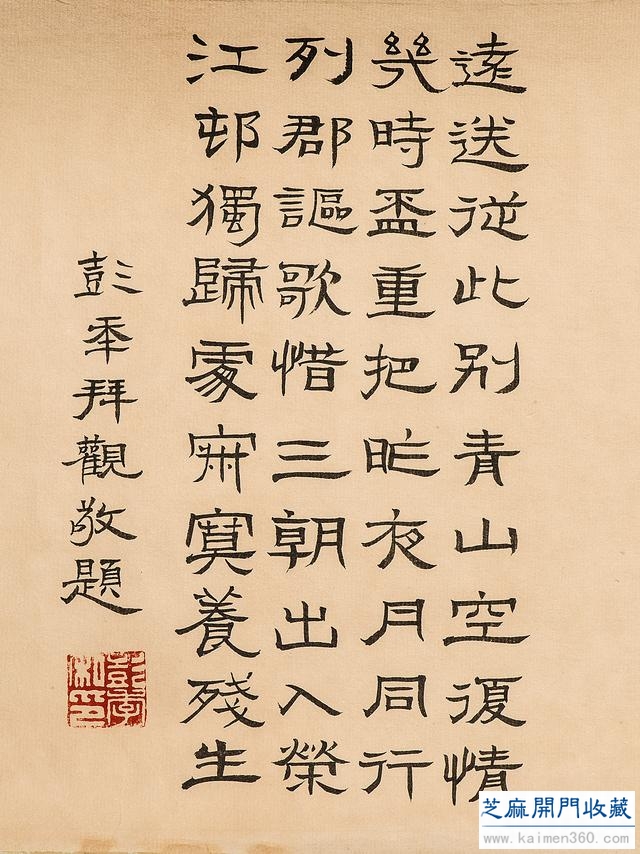 遠送從此別青山空復情
幾時盃重把昨夜月同行
列郡謳歌惜三朝出入榮
江邨獨歸處寂寞養殘生
彭年拜觀敬題
芝麻開門收藏
www.kaimen360.com